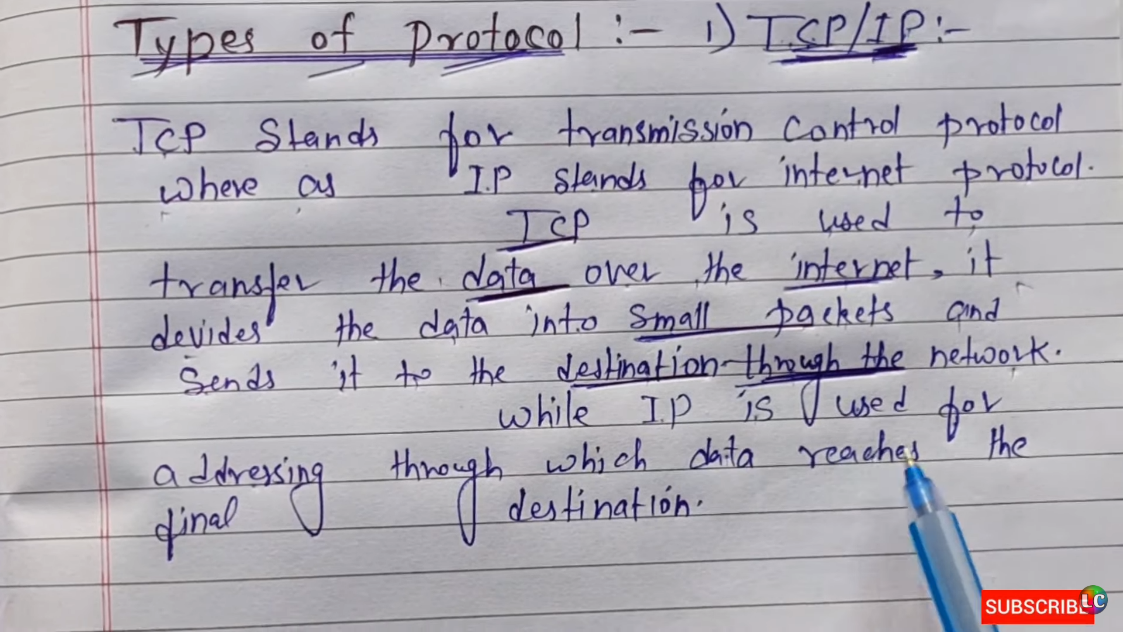 Types of Protocol :- 1) TCP/IP :-
TCP Stands for transmission Control protocol
where as I.P stands for internet protocol.
TCP is used to
transfer the data over the internet, it
devides the data into small packets and
Sends it to the destination through the network.
while I.P is used for
addressing through which data reaches the
final destination.
SUBSCRIBE
LC